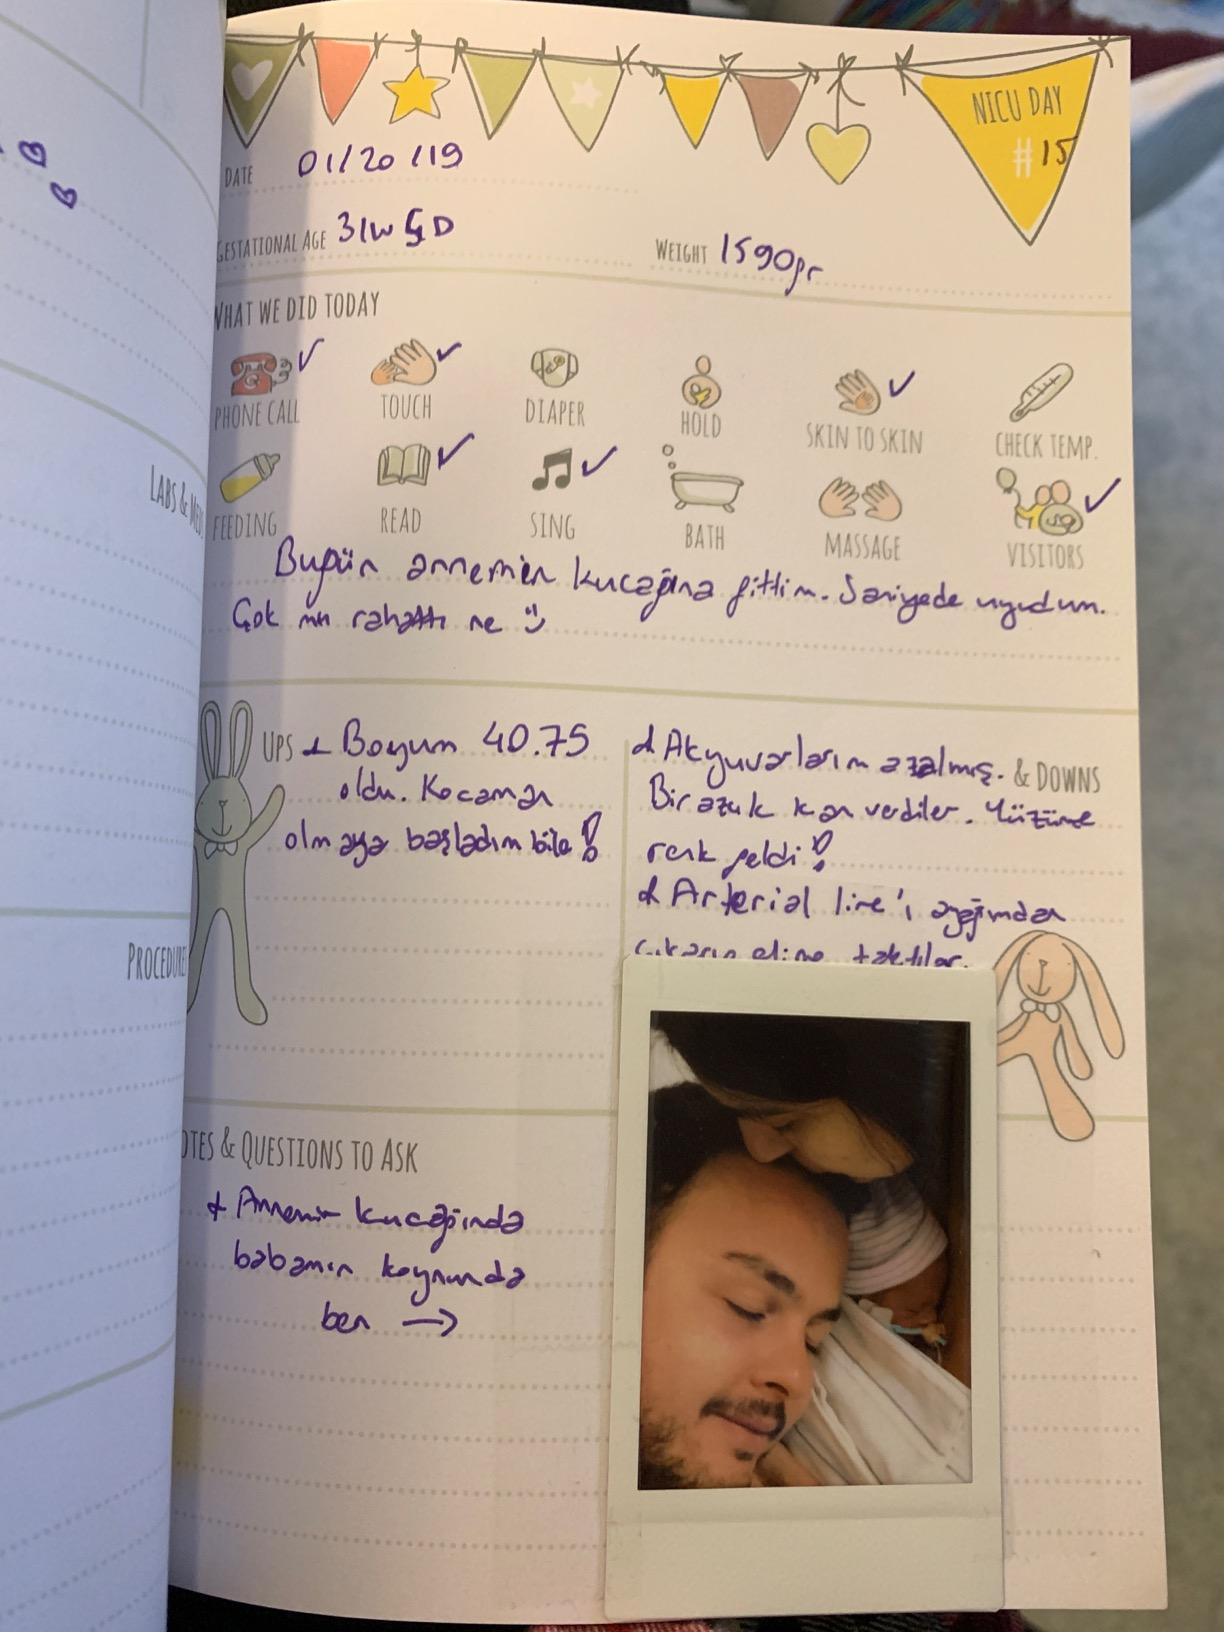 NICU DAY
# 15
DATE 01/20/19
GESTATIONAL AGE 31W 5D
WEIGHT 1590gr
WHAT WE DID TODAY
PHONE CALL TOUCH DIAPER HOLD SKIN TO SKIN CHECK TEMP.
FEEDING READ SING BATH MASSAGE VISITORS
Bugün annemin kucağına gittim. Saniyede uyudum.
Çok mu rahattı ne
UPS + Boyum 40.75
oldu. Kocaman
olmaya başladım bile!
& DOWNS
+ Akyuvarlarım azalmış.
Birazcık kan verdiler. Yüzüme
renk geldi!
+ Arterial line'ı ayağımdan
çıkarıp elime taktılar.
NOTES & QUESTIONS TO ASK
+ Annemin kucağında
babamın koynunda
ben →
LABS &
PROCEDURE